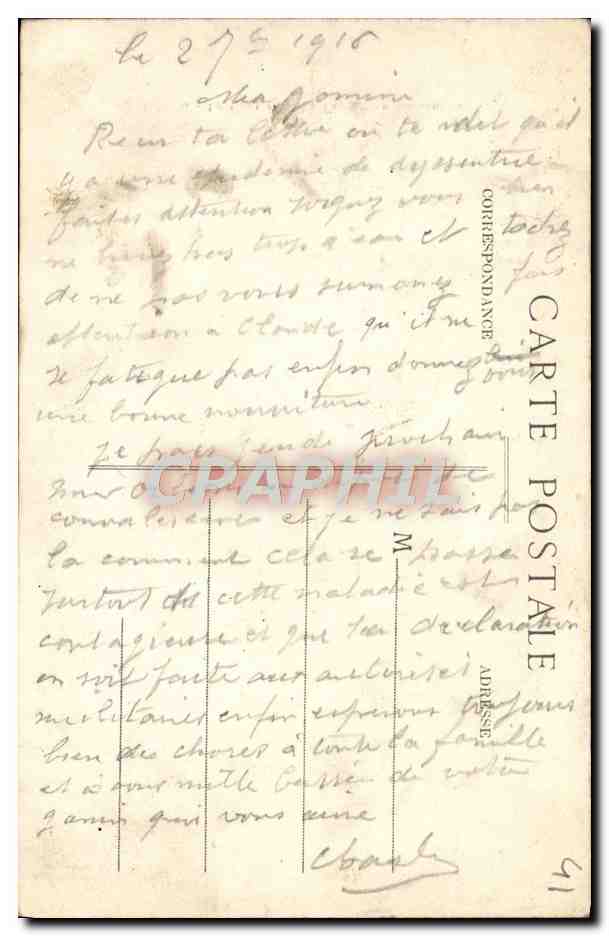 le 2 7bre 1916
Ma
Reçu ta lettre on te dit qu'il
y a une epidemie de dyssentrie
faites attention soignez vous bien
ne buvez pas trop d'eau et tachez
de ne pas vous surmener fais
attention a Claude qu'il ne
se fatigue pas enfin donnez lui
une bonne nourriture
Je pars jeudi prochain
pour
convalescence et je ne sais pas
la comment cela se passe
surtout cette maladie est
contagieuse et que la declaration
en soit faite aux autorités
militaires enfin esperons toujours
bien des choses à toute la famille
et à vous mille baisers de votre
gamin qui vous aime
Charles
CORRESPONDANCE
CARTE POSTALE
M
ADRESSE
CPAPHIL
41